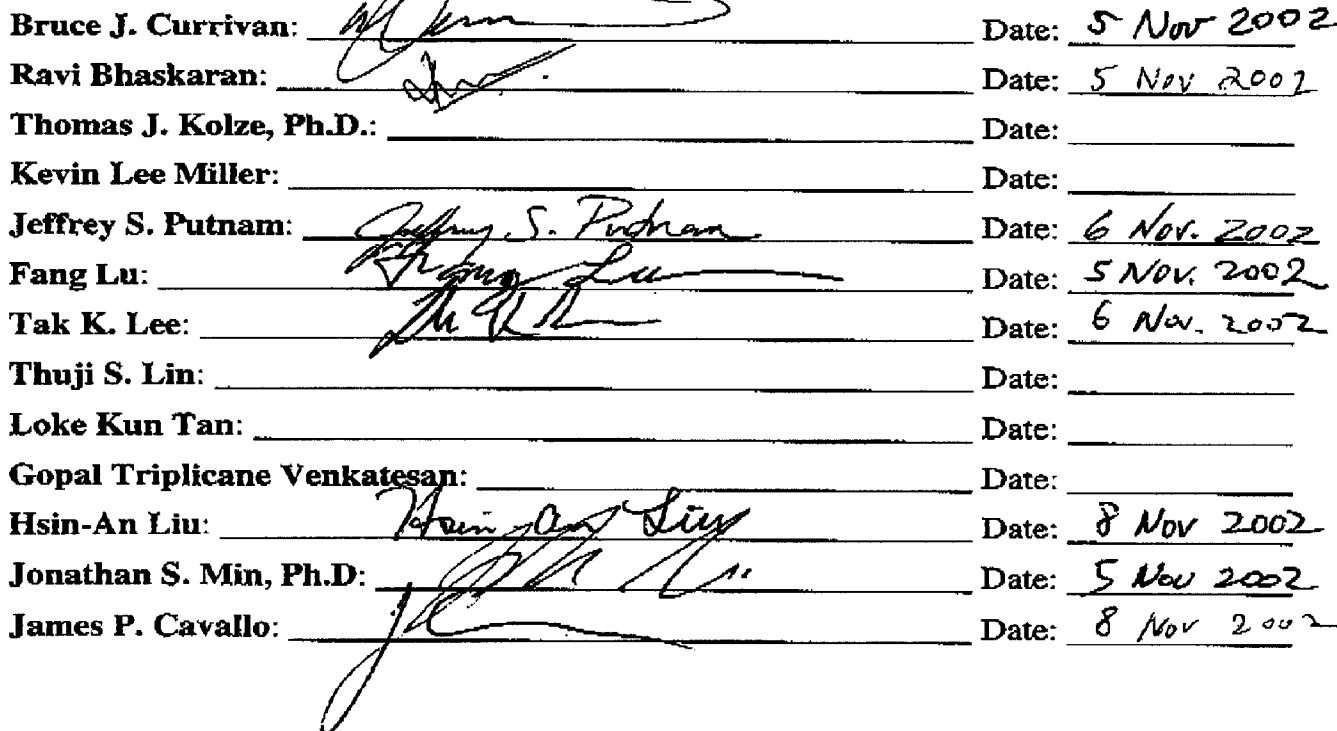 Bruce J. Currivan: Date: 5 Nov 2002
Ravi Bhaskaran: Date: 5 Nov 2002
Thomas J. Kolze, Ph.D.: Date:
Kevin Lee Miller: Date:
Jeffrey S. Putnam: Jeffrey S. Putnam Date: 6 Nov. 2002
Fang Lu: Fang Lu Date: 5 Nov. 2002
Tak K. Lee: Date: 6 Nov. 2002
Thuji S. Lin: Date:
Loke Kun Tan: Date:
Gopal Triplicane Venkatesan: Date:
Hsin-An Liu: Hsin-An Liu Date: 8 Nov 2002
Jonathan S. Min, Ph.D: Date: 5 Nov 2002
James P. Cavallo: Date: 8 Nov 2002